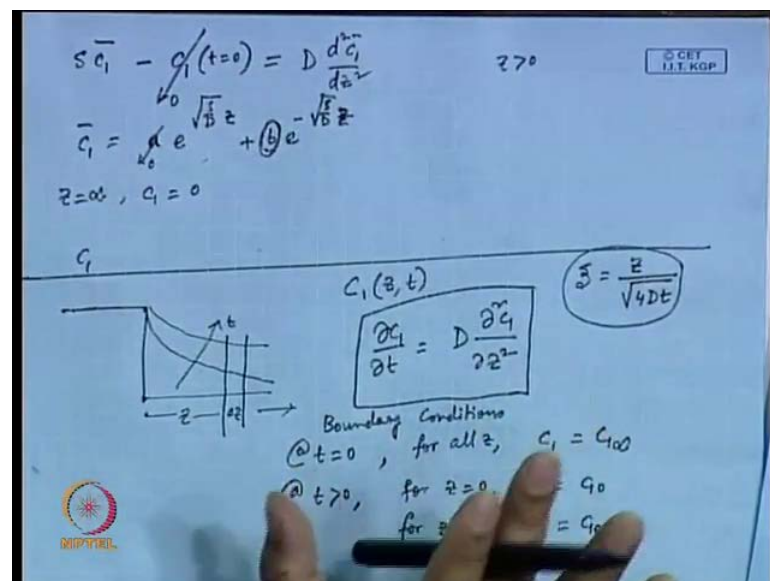 s c̄₁ - c₁(t=0) = D d²c̄₁/dz²    z>0
0
© CET
I.I.T. KGP
c̄₁ = a e^{√(s/D) z} + b e^{-√(s/D) z}
0
z=∞, c₁ = 0
c₁
C₁(z,t)
ξ = z/√4Dt
t
∂c₁/∂t = D ∂²c₁/∂z²
z    ΔZ
Boundary Conditions
@ t=0, for all z, c₁ = c₁∞
@ t>0, for z=0, = c₁₀
for = c₁∞
NPTEL